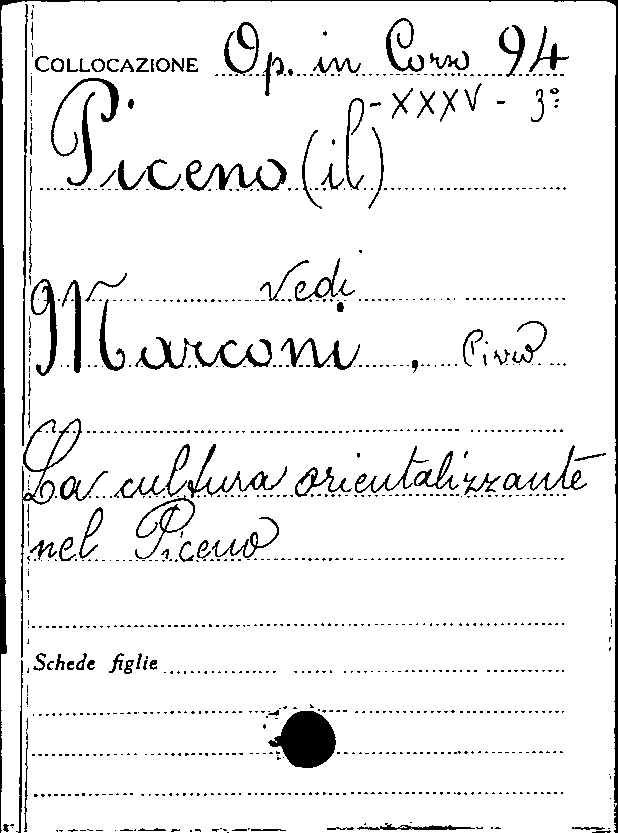 COLLOCAZIONE Op. in Corso 94
-XXXV - 3º:
Piceno (il)
vedi
Marconi, Pirro
La cultura orientalizzante
nel Piceno
Schede figlie